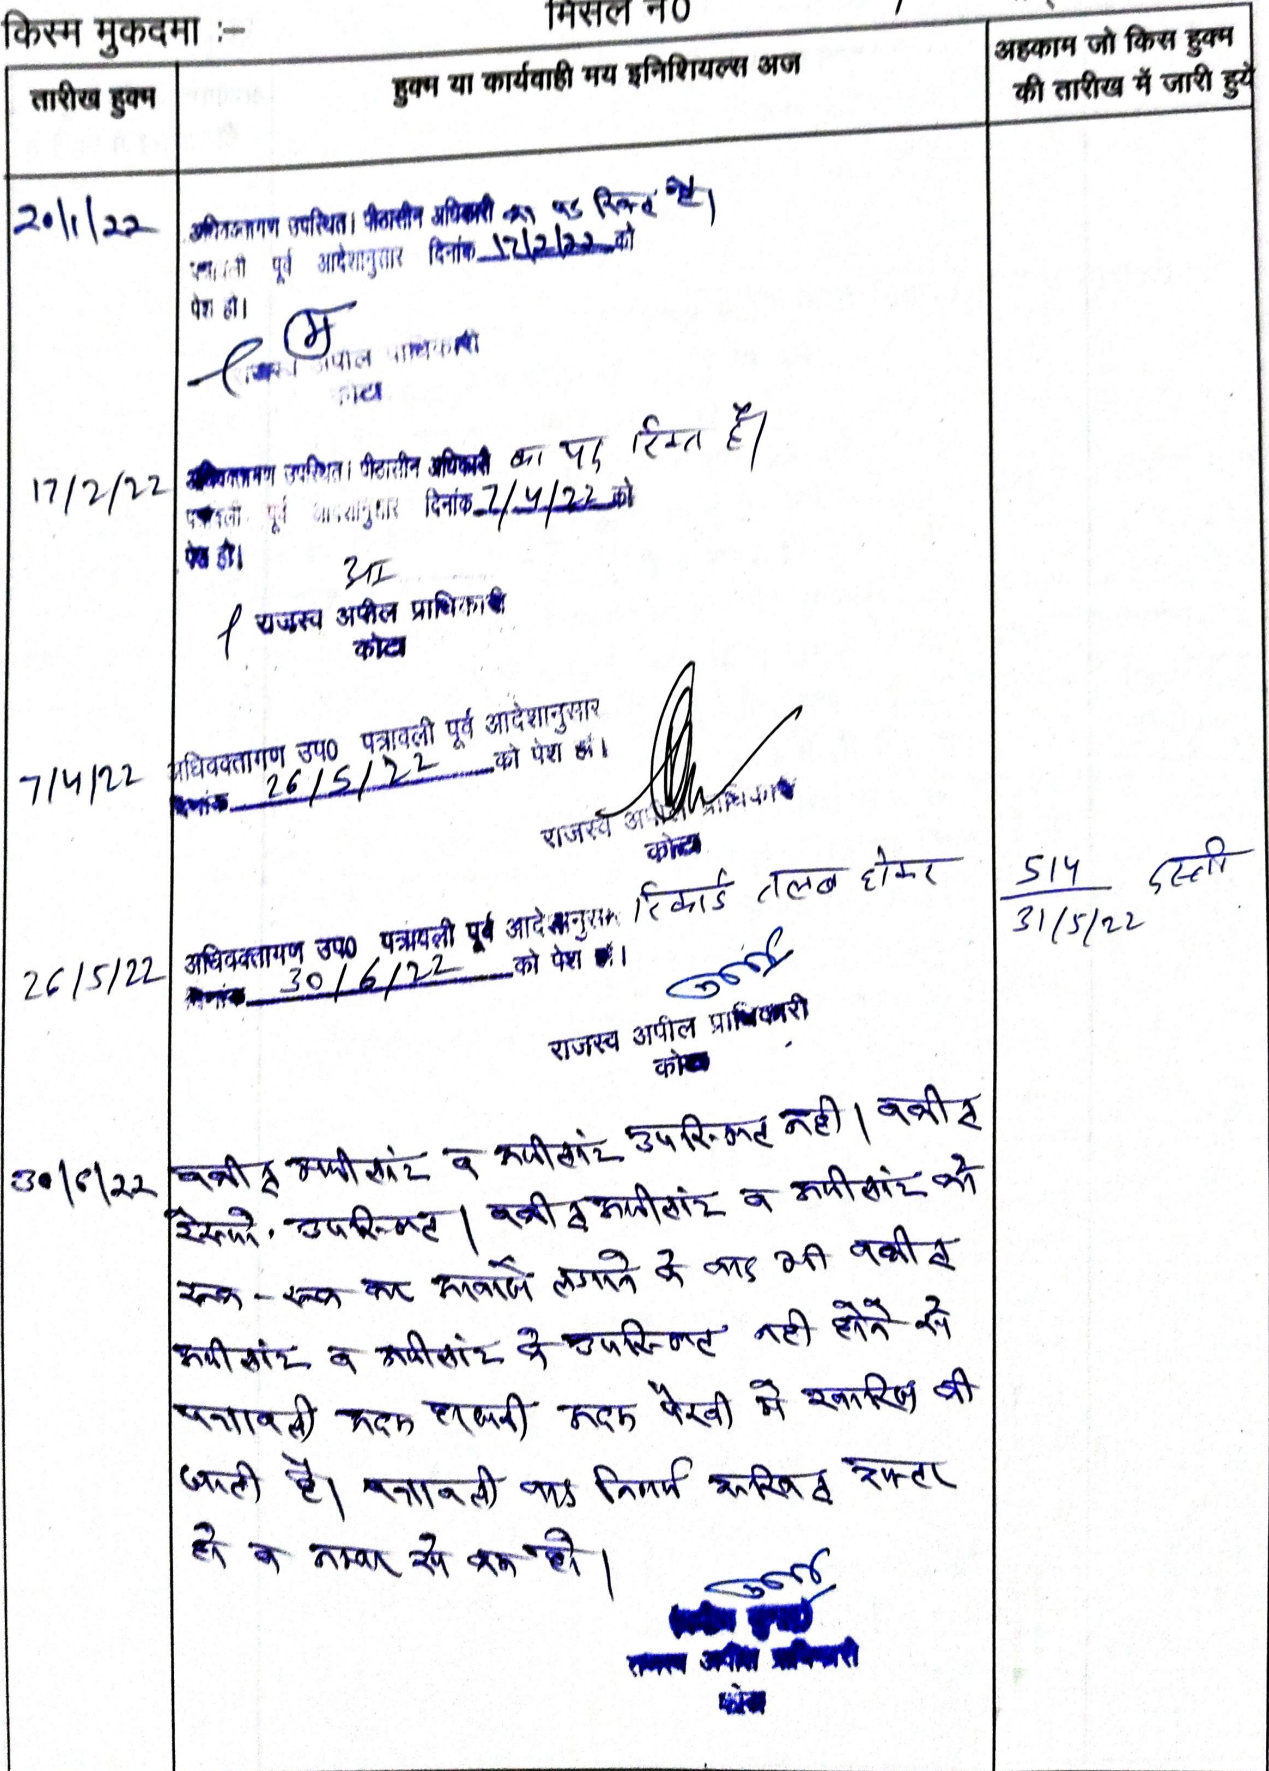 किस्म मुकदमा :–
मिसल न0
तारीख हुक्म
हुक्म या कार्यवाही मय इनिशियल्स अज
अहकाम जो किस हुक्म
की तारीख में जारी हुये
20/1/22
अभिवक्तागण उपस्थित। पीठासीन अधिकारी का पद रिक्त है।
पत्रावली पूर्व आदेशानुसार दिनांक 17/2/22 को
पेश हो।
राजस्व अपील प्राधिकारी
कोटा
17/2/22
अभिवक्तागण उपस्थित। पीठासीन अधिकारी का पद रिक्त है।
पत्रावली पूर्व आदेशानुसार दिनांक 7/4/22 को
पेश हो।
राजस्व अपील प्राधिकारी
कोटा
7/4/22
अधिवक्तागण उप0 पत्रावली पूर्व आदेशानुसार
दिनांक 26/5/22 को पेश हो।
राजस्व अपील प्राधिकारी
कोटा
26/5/22
अधिवक्तागण उप0 पत्रावली पूर्व आदेशानुसार रिकार्ड तलब होकर
दिनांक 30/6/22 को पेश हो।
514
31/5/22
दस्ती
राजस्व अपील प्राधिकारी
कोटा
30/6/22
वकील अपीलांट व अपीलांट उपस्थित नही। वकील
रेस्पो. उपस्थित। वकील अपीलांट व अपीलांट को
रूक-रूक कर आवाजें लगाने के बाद भी वकील
अपीलांट व अपीलांट के उपस्थित नही होने से
पत्रावली अदम हाजरी अदम पैरवी में खारिज की
जाती है। पत्रावली बाद निर्णय दाखिल दफ्तर
हो व नम्बर से कम हो।
राजस्व अपील प्राधिकारी
कोटा